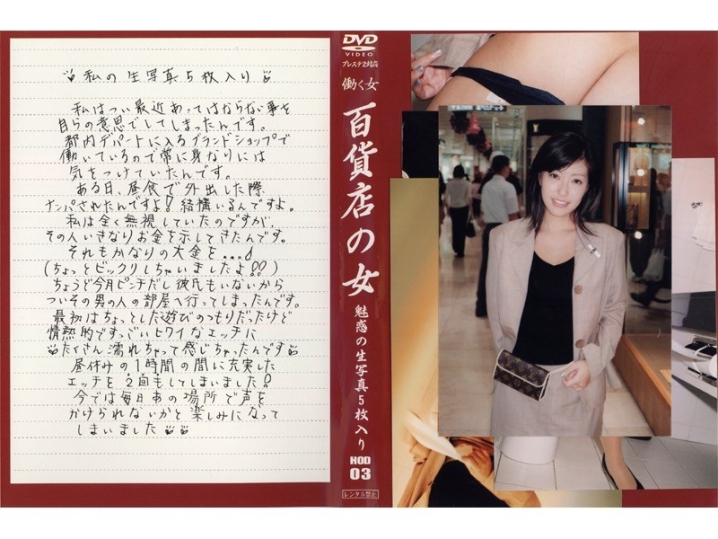 私の生写真5枚入り
私はつい最近あってはならない事を
自らの意思でしてしまったんです。
都内デパートに入るブランドショップで
働いているので常に身なりには
気をつけていたんです。
ある日、昼食で外出した際
ナンパされたんですよ!結構いるんですよ。
私は全く無視していたのですが
その人いきなりお金を示してきたんです。
それもかなりの大金を...!
(ちょっとビックリしちゃいましたよ!?)
ちょうど今月ピンチだし彼氏もいないから
ついその男の人の部屋へ行ってしまったんです。
最初はちょっとした遊びのつもりだったけど
情熱的ですっごいヒワイなエッチに
たくさん濡れちゃって感じちゃったんです
昼休みの1時間の間に充実した
エッチを2回もしてしまいました!
今では毎日あの場所で声を
かけられないかと楽しみになって
しまいました
DVD
VIDEO
プレステ2対応
働く女
百貨店の女
魅惑の生写真5枚入り
HOD
03
レンタル禁止